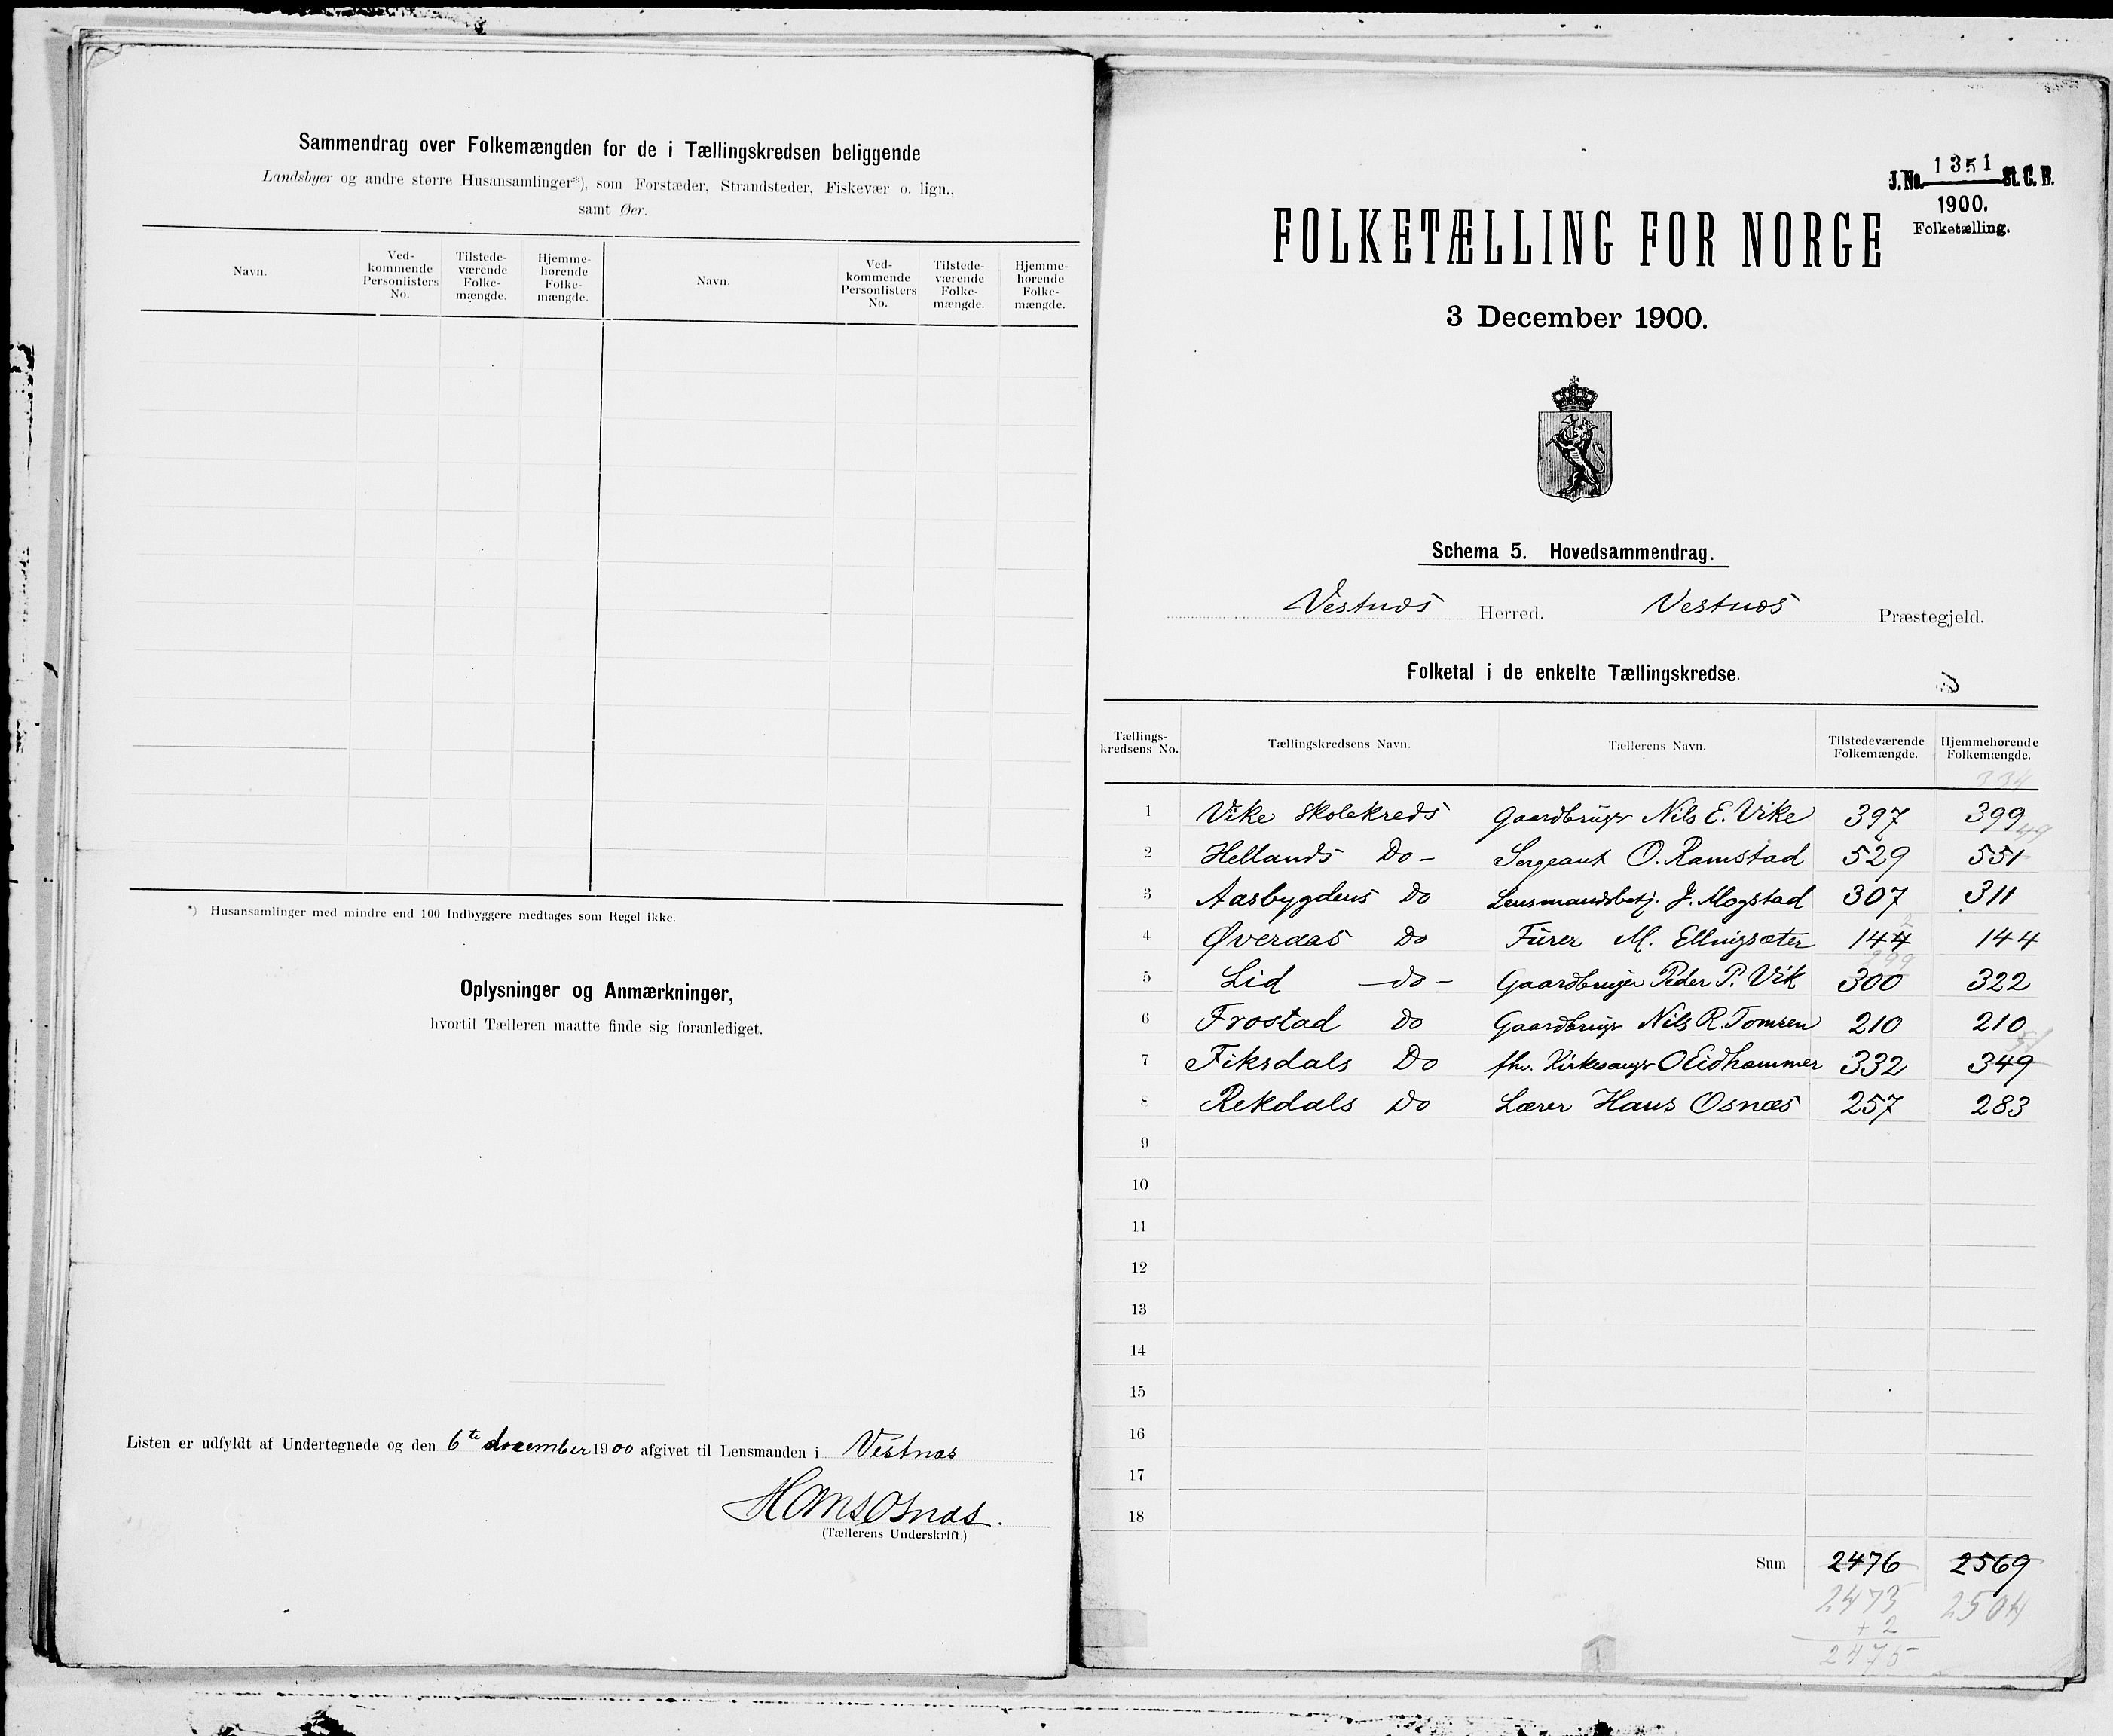 Sammendrag over Folkemængden for de i Tællingskredsen beliggende
Landsbyer og andre større Husansamlinger*), som Forstæder, Strandsteder, Fiskevær o. lign.,
samt Øer.
Navn.
Ved-
kommende
Personlisters
No.
Tilstede-
værende
Folke-
mængde.
Hjemme-
hørende
Folke-
mængde.
Navn.
Ved-
kommende
Personlisters
No.
Tilstede-
værende
Folke-
mængde.
Hjemme-
hørende
Folke-
mængde.
*) Husansamlinger med mindre end 100 Indbyggere medtages som Regel ikke.
Oplysninger og Anmærkninger,
hvortil Tælleren maatte finde sig foranlediget.
Listen er udfyldt af Undertegnede og den 6te december 1900 afgivet til Lensmanden i Vestnæs
Hans Osnæs.
(Tællerens Underskrift.)
J. No. 1351 St. C. B.
1900.
Folketælling.
FOLKETÆLLING FOR NORGE
3 December 1900.
Schema 5. Hovedsammendrag.
Vestnæs Herred. Vestnæs Præstegjeld.
Folketal i de enkelte Tællingskredse.
Tællings-
kredsens No.
Tællingskredsens Navn.
Tællerens Navn.
Tilstedeværende
Folkemængde.
Hjemmehørende
Folkemængde.
334
1 Vike Skolekreds Gaardbruger Nils E. Vike 397 399
49
2 Hellands Do - Sergeant O. Ramstad 529 551
3 Aasbygdens Do Lensmandsbetj. J. Mogstad 307 311
2
4 Øveraas Do Furer M. Ellingsæter 144 144
299
5 Lid - do - Gaardbruger Peder P. Vik 300 322
6 Frostad Do Gaardbruger Nils R. Tomren 210 210
51
7 Fiksdals Do fhv. Kirkesanger O Eidhammer 332 349
8 Rekdals Do Lærer Hans Osnæs 257 283
9
10
11
12
13
14
15
16
17
18
Sum 2476 2569
2473 2504
+ 2
2475